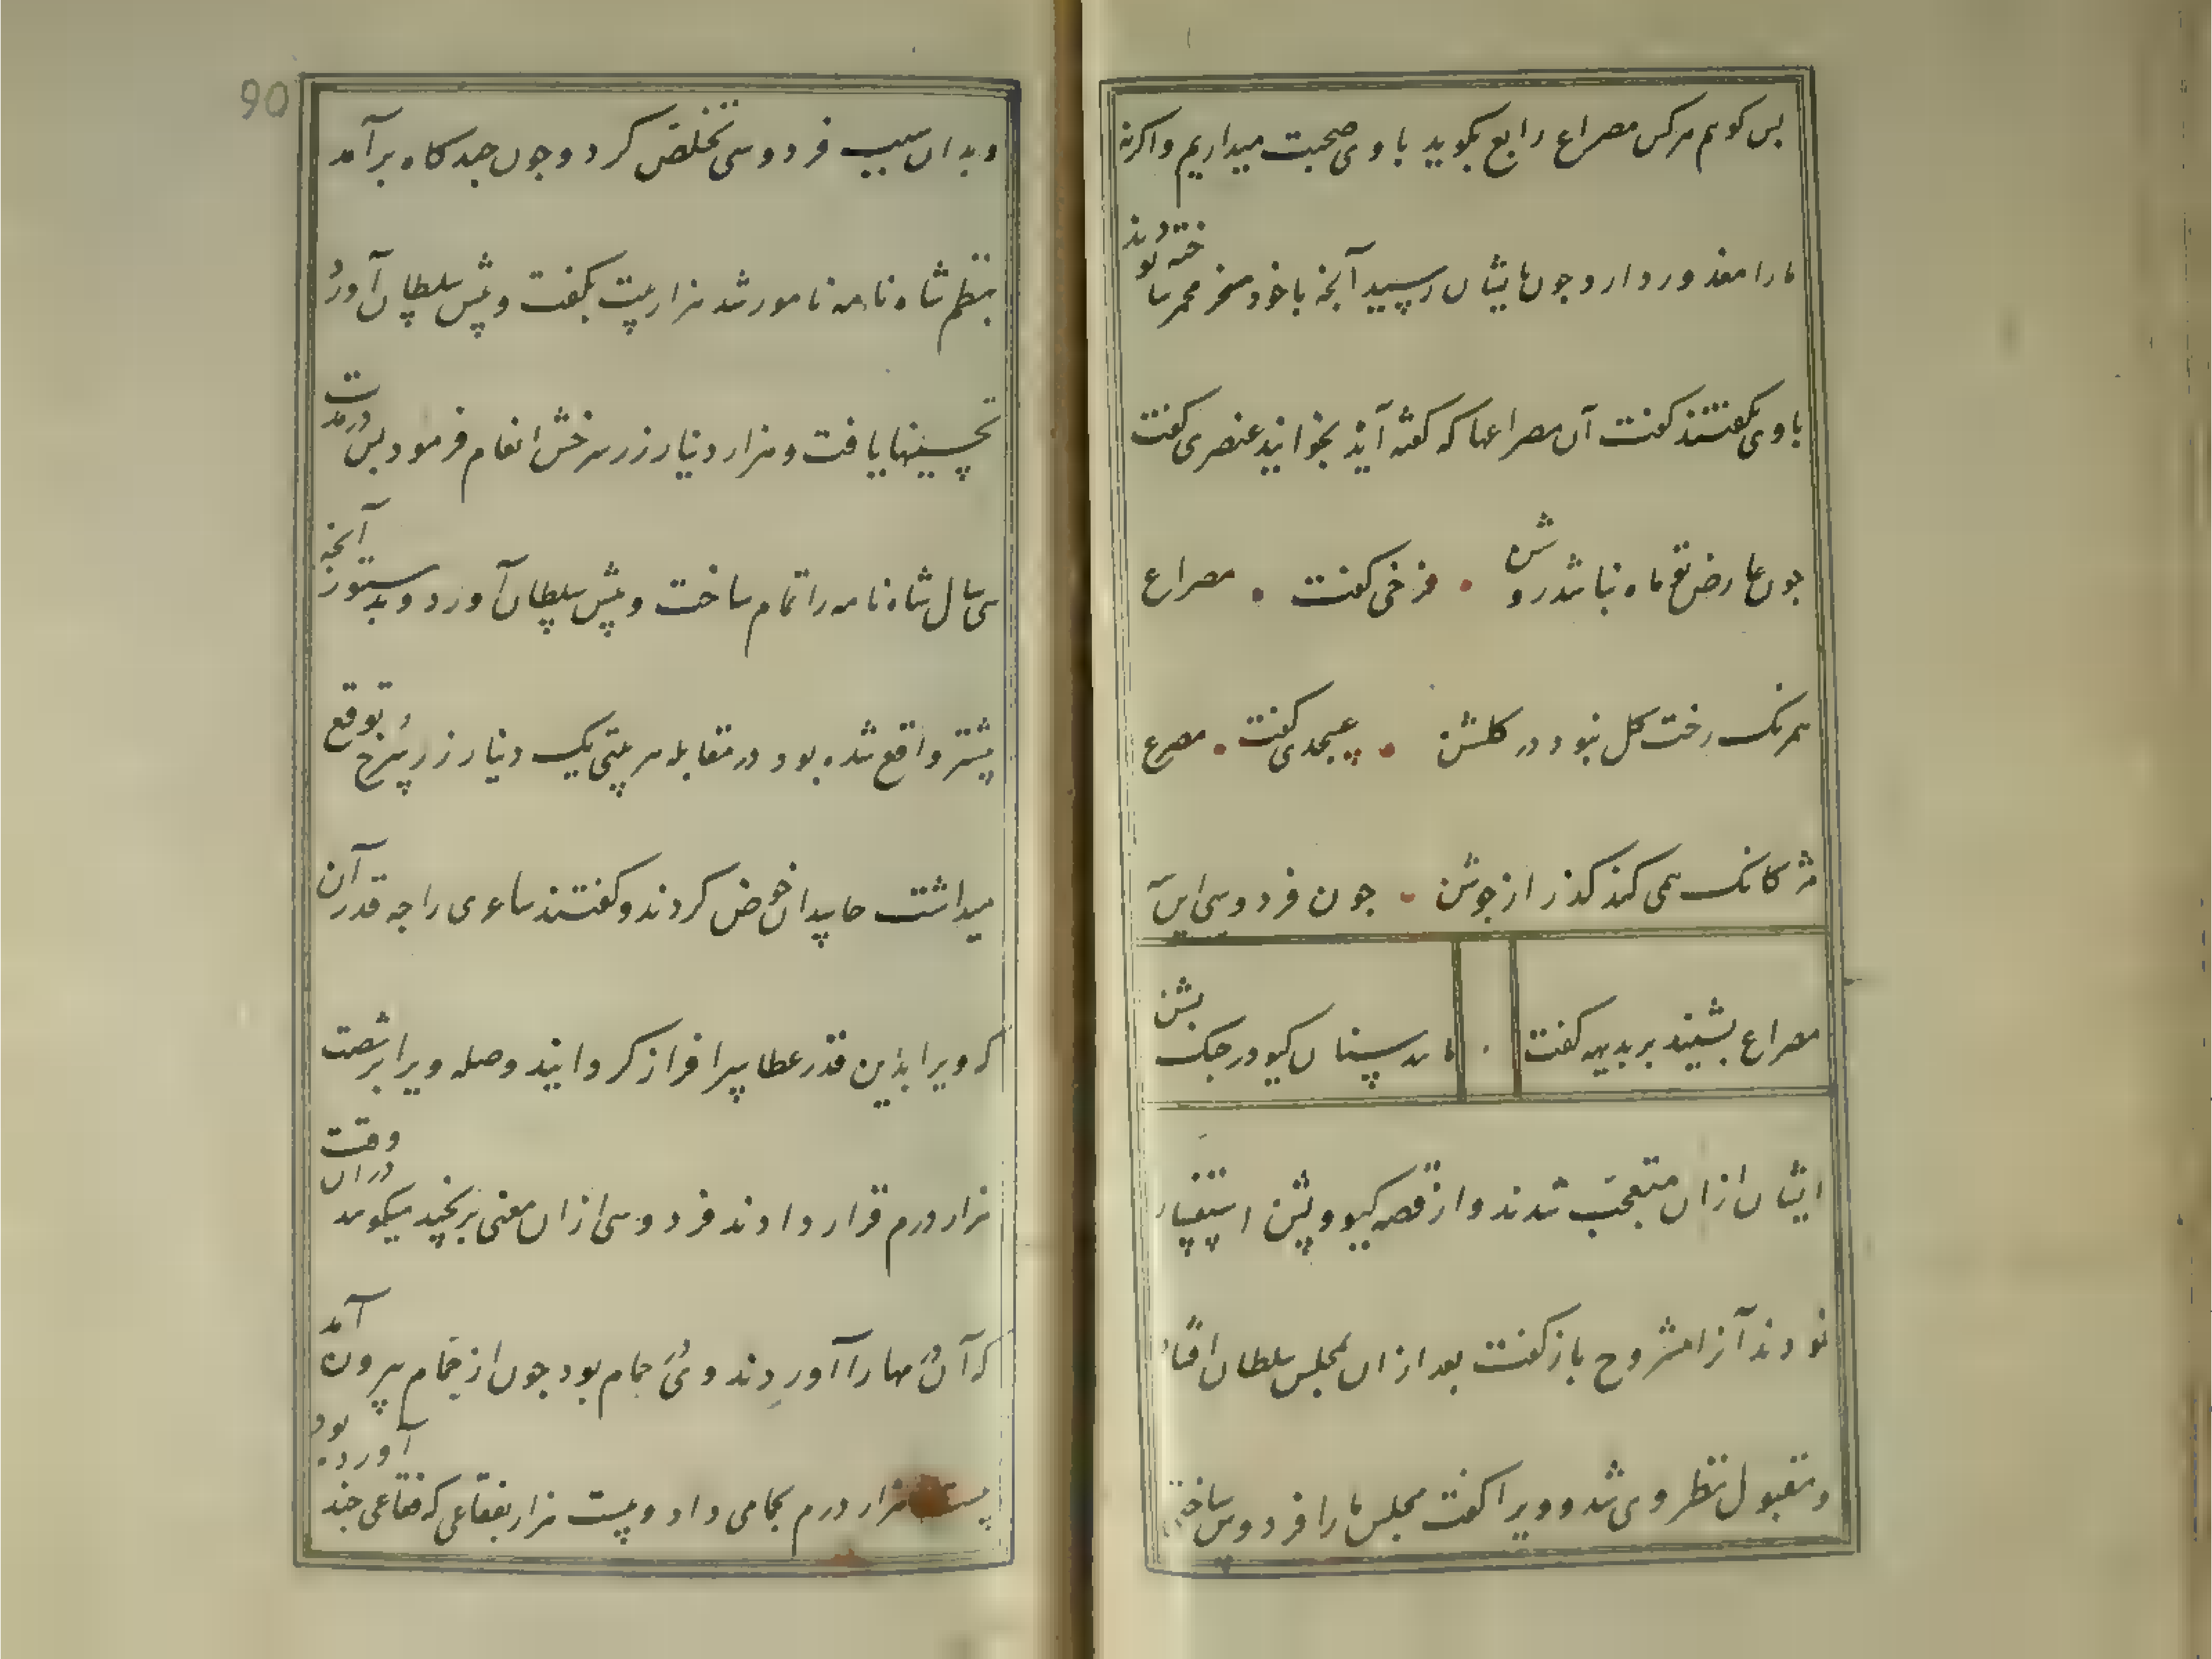 بس کوییم هرکس مصراع رابع بکوید با وی صحبت میداریم و اکرنه
ما را معذور دارد و چون بایشان رسید آنجه با خود مخمر ساخته بودند
با وی بکفتند کفت آن مصراعها که کفته آید بخوانید عنصری کفت
جون عارض تو ماه نباشد روشن • فرخی کفت • مصراع
همرنک رخت کل نبود در کلشن • عسجدی کفت • مصرع
مژکانت همی کند کذر از جوشن • جون فردوسی این
مصراع بشنید بر بدیهه کفت مانند سنان کیو در جنک بشن
ایشان از آن متعجب شدند و از قصه کیو و پشن استفسار
نمودند آنرا مشروح باز کفت بعد از آن بمجلس سلطان افتاد
و مقبول نظر وی شد و ویرا کفت مجلس ما را فردوس ساختی
و بدان سبب فردوسی تخلص کرد و جون جندکاه برآمد
بنظم شاه نامه نامور شد هزار بیت بکفت و پیش سلطان آورد
تحسینها یافت و هزار دینار زر سرخش انعام فرمود بس در مدت
سی سال شاه نامه را تمام ساخت و پیش سلطان آورد و بدستور آنجه
پیشتر واقع شده بود در مقابله هر بیتی یک دینار زر سرخ توقع
میداشت حاسدان خوض کردند و کفتند شاعری را جه قدر آن
که ویرا بذین قدر عطا سرافراز کردانید و صله ویرا بر شصت
هزار درم قرار دادند فردوسی از آن معنی برنجید میکویند در آن وقت
که آن درمها را آوردند وی در حمام بود جون از حمام بیرون آمد
بیست هزار درم بحمامی داد و بیست هزار بفقاعی که فقاعی جند آورده بود
90